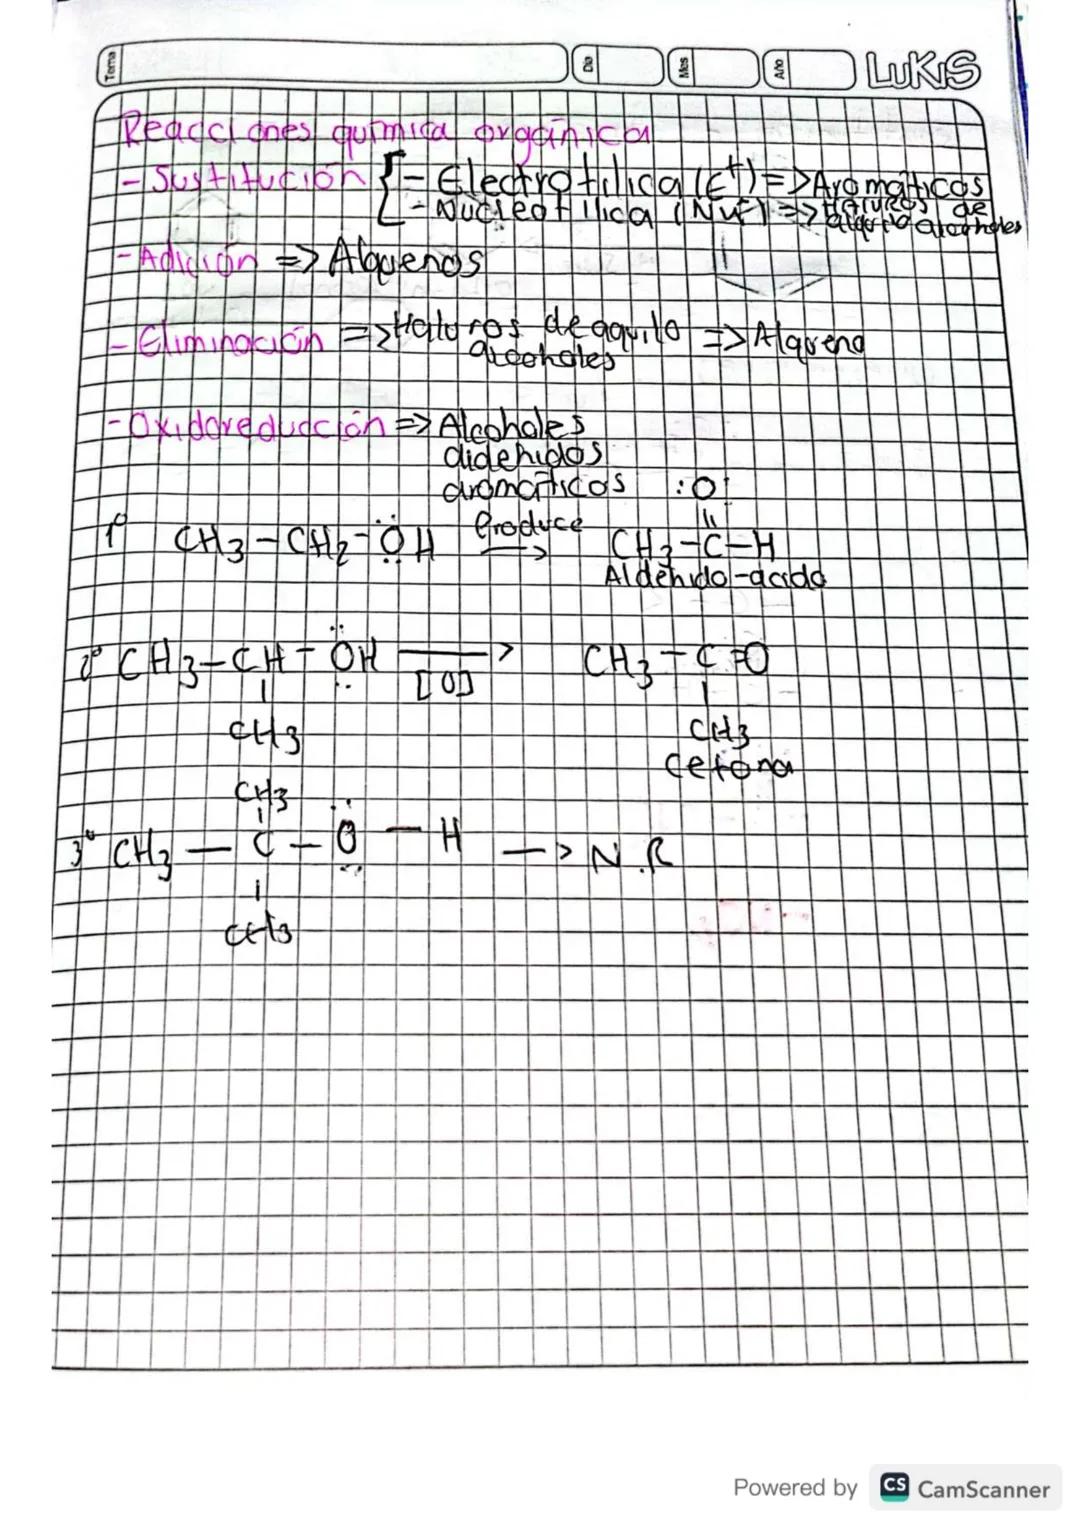 Tema Dia Mes Año LUKIS
Reacciones química orgánica
- Sustitución { - Electrofílica (E+) => Aromáticos
- Nucleofílica (Nu-) => Haluros de alquilo alcoholes
- Adición => Alquenos
- Eliminación => Haluros de aquilo => Alqueno
alcoholes
- Oxidoreducción => Alcoholes
aldehidos
aromáticos :O:
1° CH3-CH2-ÖH Produce → CH3-C-H
Aldehido-acido
2° CH3-CH-ÖH → [O] CH3-C=O
CH3 CH3
Cetona
CH3
3° CH3-C-Ö-H -> N.R
CH3
Powered by CS CamScanner